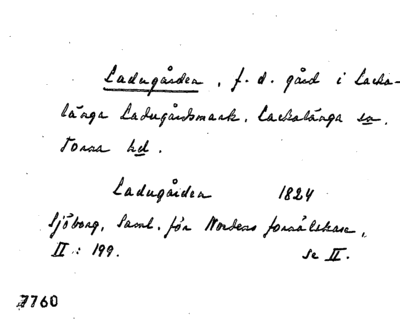 Ladugården, f.d. gård i Lacka-
länga Ladugårdsmark, Lackalänga sn,
Torna hd.
Ladugården 1824
Sjöborg, Saml. för Nordens fornälskare,
II: 199. Se II.
7760